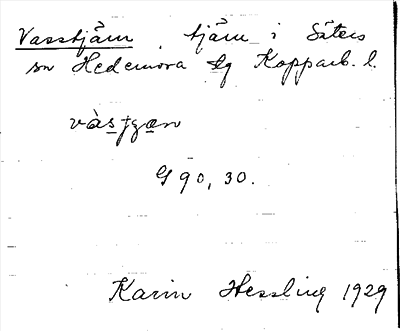 Vasstjärn tjärn i Säters
sn Hedemora tg Kopparb. l.
G 90, 30.
Karin Hessling 1929